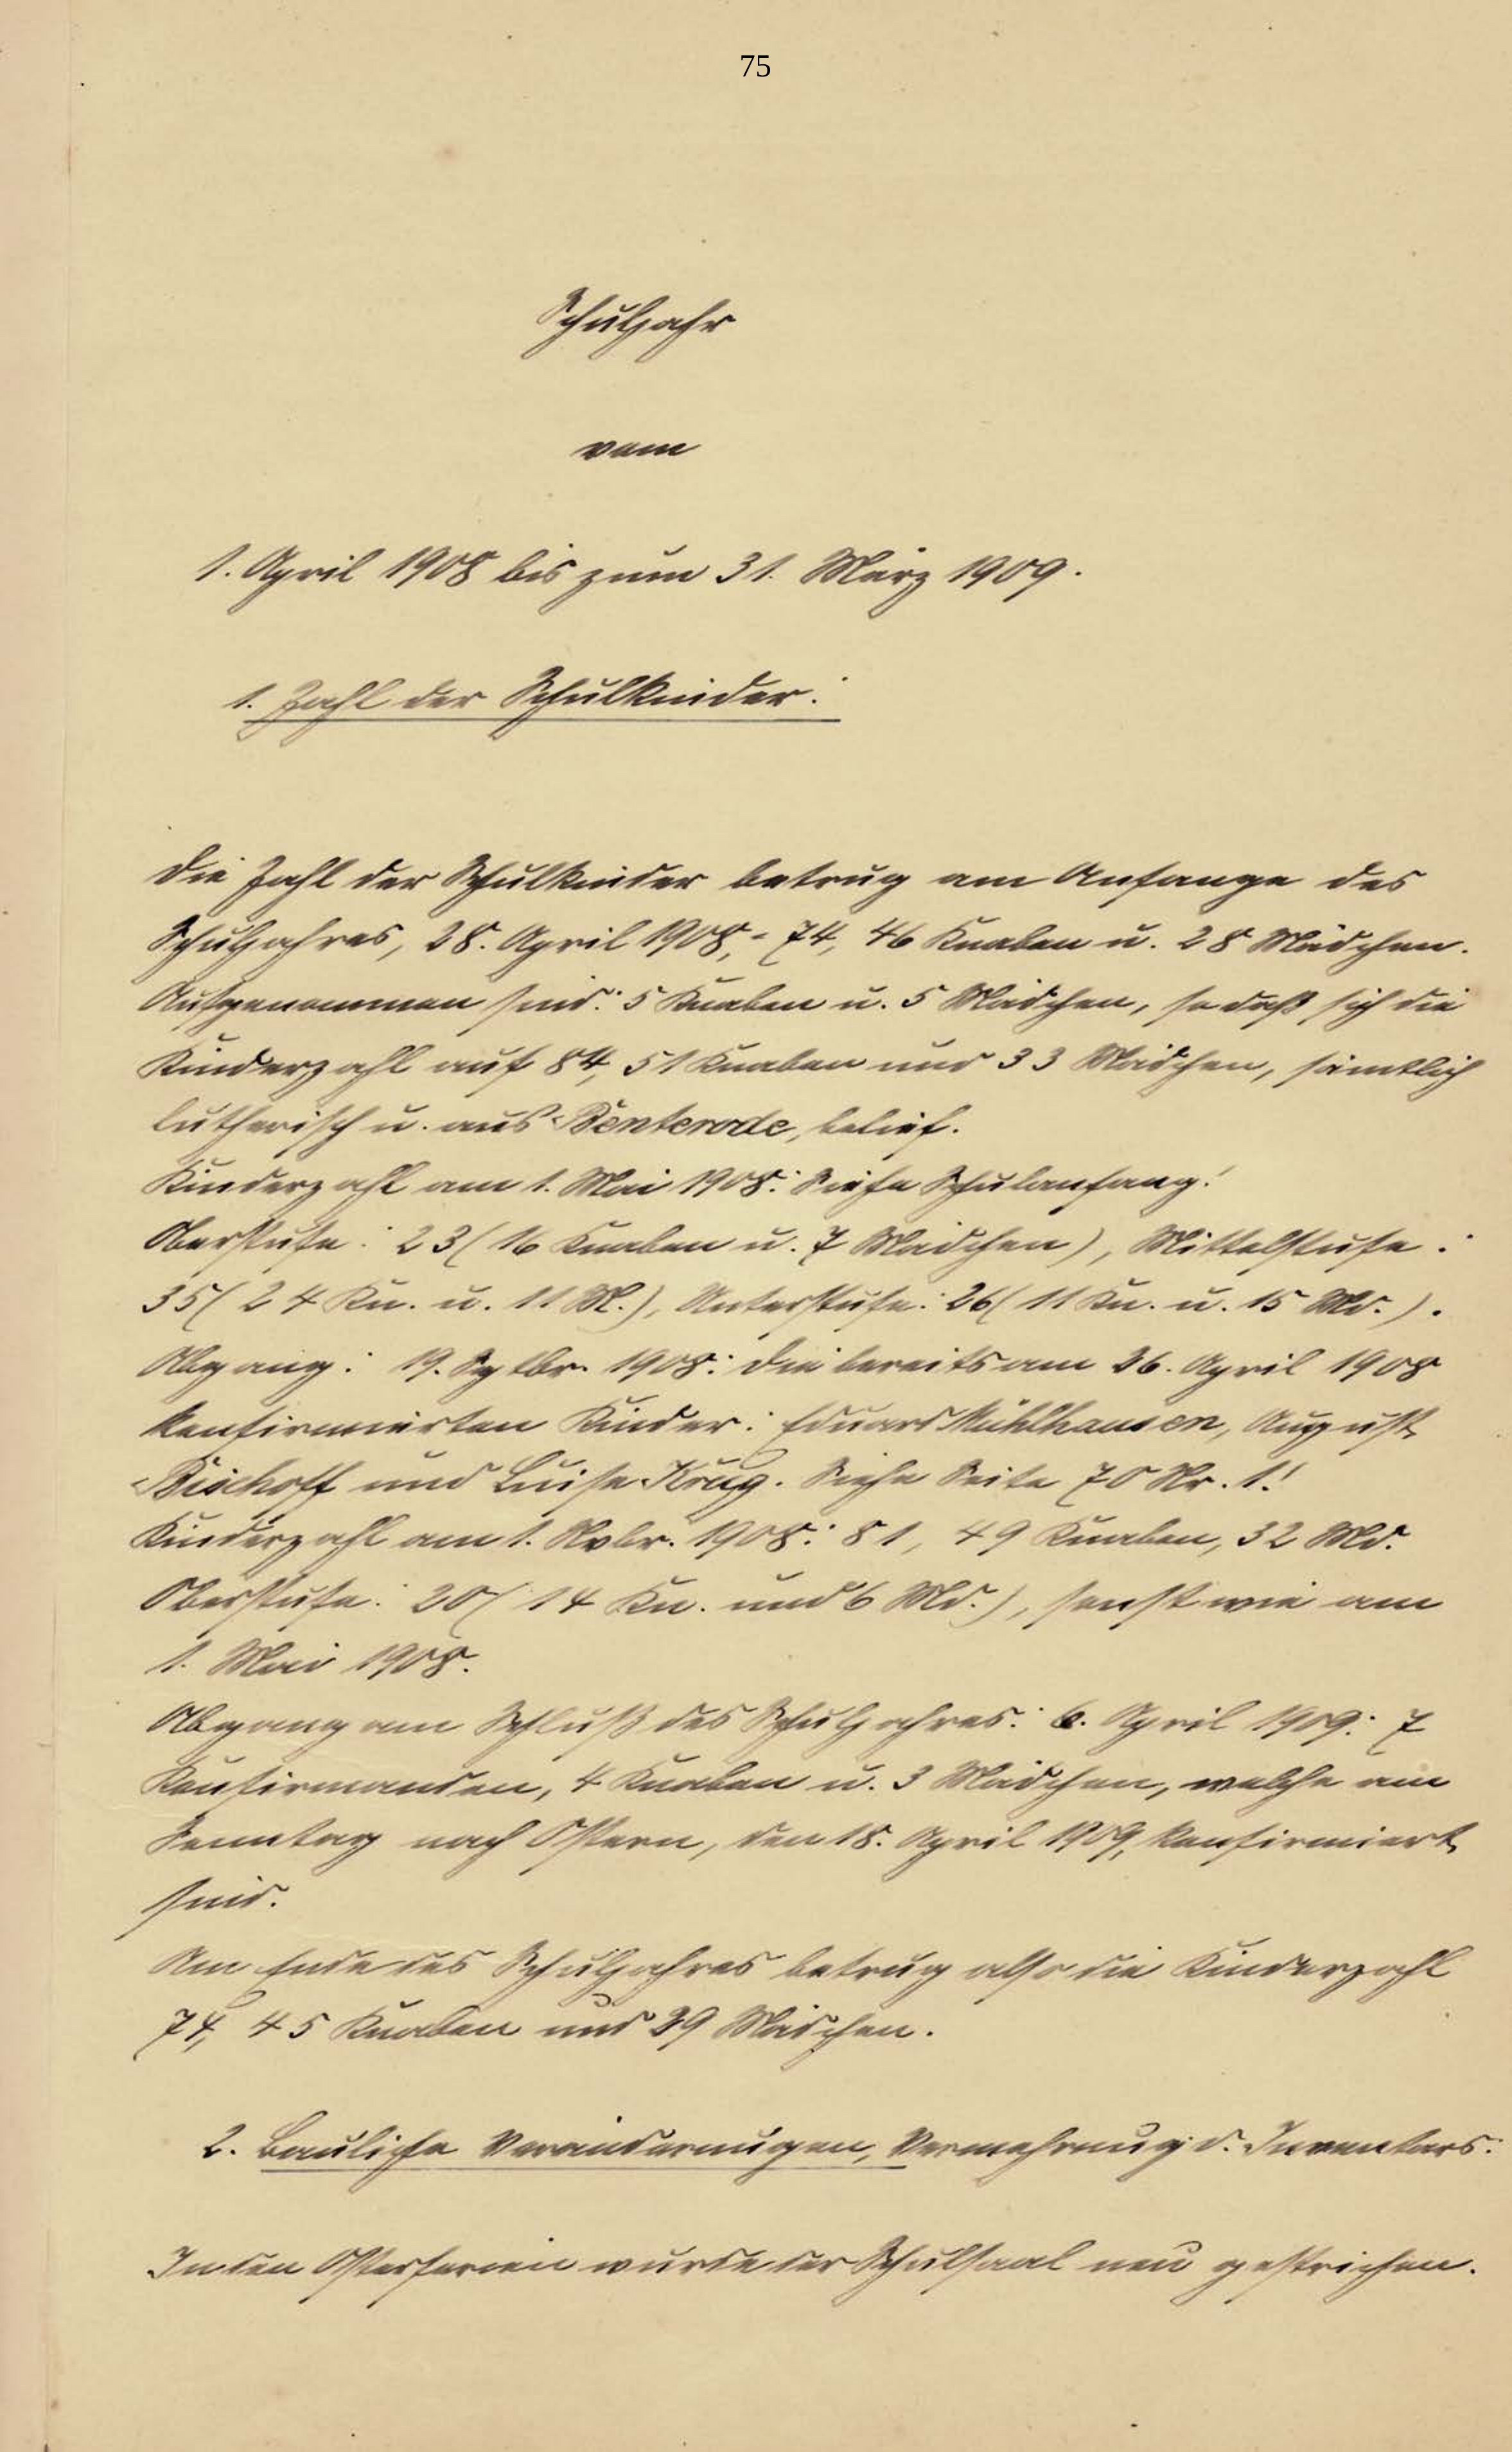 75
Schuljahr
vom
1. April 1908 bis zum 31. März 1909.
1. Zahl der Schulkinder:
Die Zahl der Schulkinder betrug am Anfange des
Schuljahres, 28. April 1908, = 74, 46 Knaben u. 28 Mädchen.
Aufgenommen sind: 5 Knaben u. 5 Mädchen, so daß sich die
Kinderzahl auf 84, 51 Knaben und 33 Mädchen, sämtlich
lutherisch u. aus Benterode, belief.
Kinderzahl am 1. Mai 1908: Siehe Schulanfang!
Oberstufe: 23 (16 Knaben u. 7 Mädchen), Mittelstufe:
35 (24 Kn. u. 11 M.), Unterstufe: 26 (11 Kn. u. 15 Md.).
Abgang: 19. Sptbr. 1908: Die bereits am 26. April 1908
konfirmierten Kinder: Eduard Mühlhausen, August
Bischoff und Luise Krug. Siehe Seite 70 Nr. 1!
Kinderzahl am 1. Novbr. 1908: 81, 49 Knaben, 32 Md.
Oberstufe: 20 (14 Kn. und 6 Md.), sonst wie am
1. Mai 1908.
Abgang am Schluß des Schuljahres: 6. April 1909: 7
Konfirmanden, 4 Knaben u. 3 Mädchen, welche am
Sonntag nach Ostern, den 18. April 1909, konfirmiert
sind.
Am Ende des Schuljahres betrug also die Kinderzahl
74, 45 Knaben und 29 Mädchen.
2. Bauliche Veränderungen, Vermehrung d. Inventars:
In den Osterferien wurde der Schulsaal neu gestrichen.